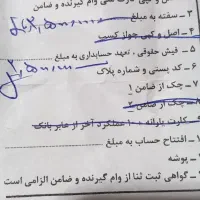 وام گیرنده و ضامن
۳ ـ سفته به مبلغ
۴ ـ اصل و کپی جواز کسب
۵ ـ فیش حقوقی ، تعهد حسابداری به مبلغ
۶ ـ کد پستی و شماره پلاک
۷ ـ چک از ضامن ۱
۸ ـ چک از ضامن ۲
کارت یارانه + ۱۰ عملکرد آخر از عابر بانک
۱۰ ـ افتتاح حساب به مبلغ
پوشه
گواهی ثبت ثنا از وام گیرنده و ضامن الزامی است